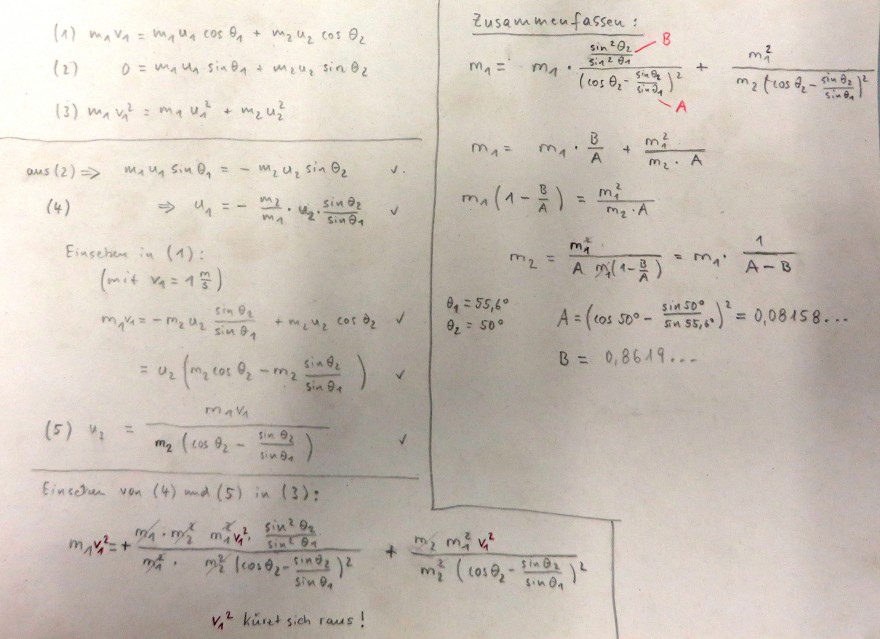 (1) m₁v₁ = m₁u₁ cos θ₁ + m₂u₂ cos θ₂
(2) 0 = m₁u₁ sin θ₁ + m₂u₂ sin θ₂
(3) m₁v₁² = m₁u₁² + m₂u₂²
aus (2) ⇒ m₁u₁ sin θ₁ = - m₂u₂ sin θ₂ ✓.
(4) ⇒ u₁ = - m₂/m₁ · u₂ · sin θ₂/sin θ₁ ✓
Einsetzen in (1):
(mit v₁ = 1 m/s)
m₁v₁ = - m₂u₂ sin θ₂/sin θ₁ + m₂u₂ cos θ₂ ✓
= u₂ (m₂ cos θ₂ - m₂ sin θ₂/sin θ₁) ✓
(5) u₂ = m₁v₁ / m₂ (cos θ₂ - sin θ₂/sin θ₁) ✓
Einsetzen von (4) und (5) in (3):
m₁v₁² = + m₁ · m₂² m₁² v₁² · sin²θ₂/sin²θ₁ / m₁² · m₂² (cos θ₂ - sin θ₂/sin θ₁)² + m₂ m₁² v₁² / m₂² (cos θ₂ - sin θ₂/sin θ₁)²
v₁² kürzt sich raus!
Zusammenfassen:
m₁ = m₁ · sin²θ₂/sin²θ₁ / (cos θ₂ - sin θ₂/sin θ₁)² + m₁² / m₂ (cos θ₂ - sin θ₂/sin θ₁)²
B
A
m₁ = m₁ · B/A + m₁²/m₂ · A
m₁ (1 - B/A) = m₁²/m₂ · A
m₂ = m₁² / A m₁ (1 - B/A) = m₁ · 1/A - B
θ₁ = 55,6°
θ₂ = 50°
A = (cos 50° - sin 50°/sin 55,6°)² = 0,08158...
B = 0,8619...